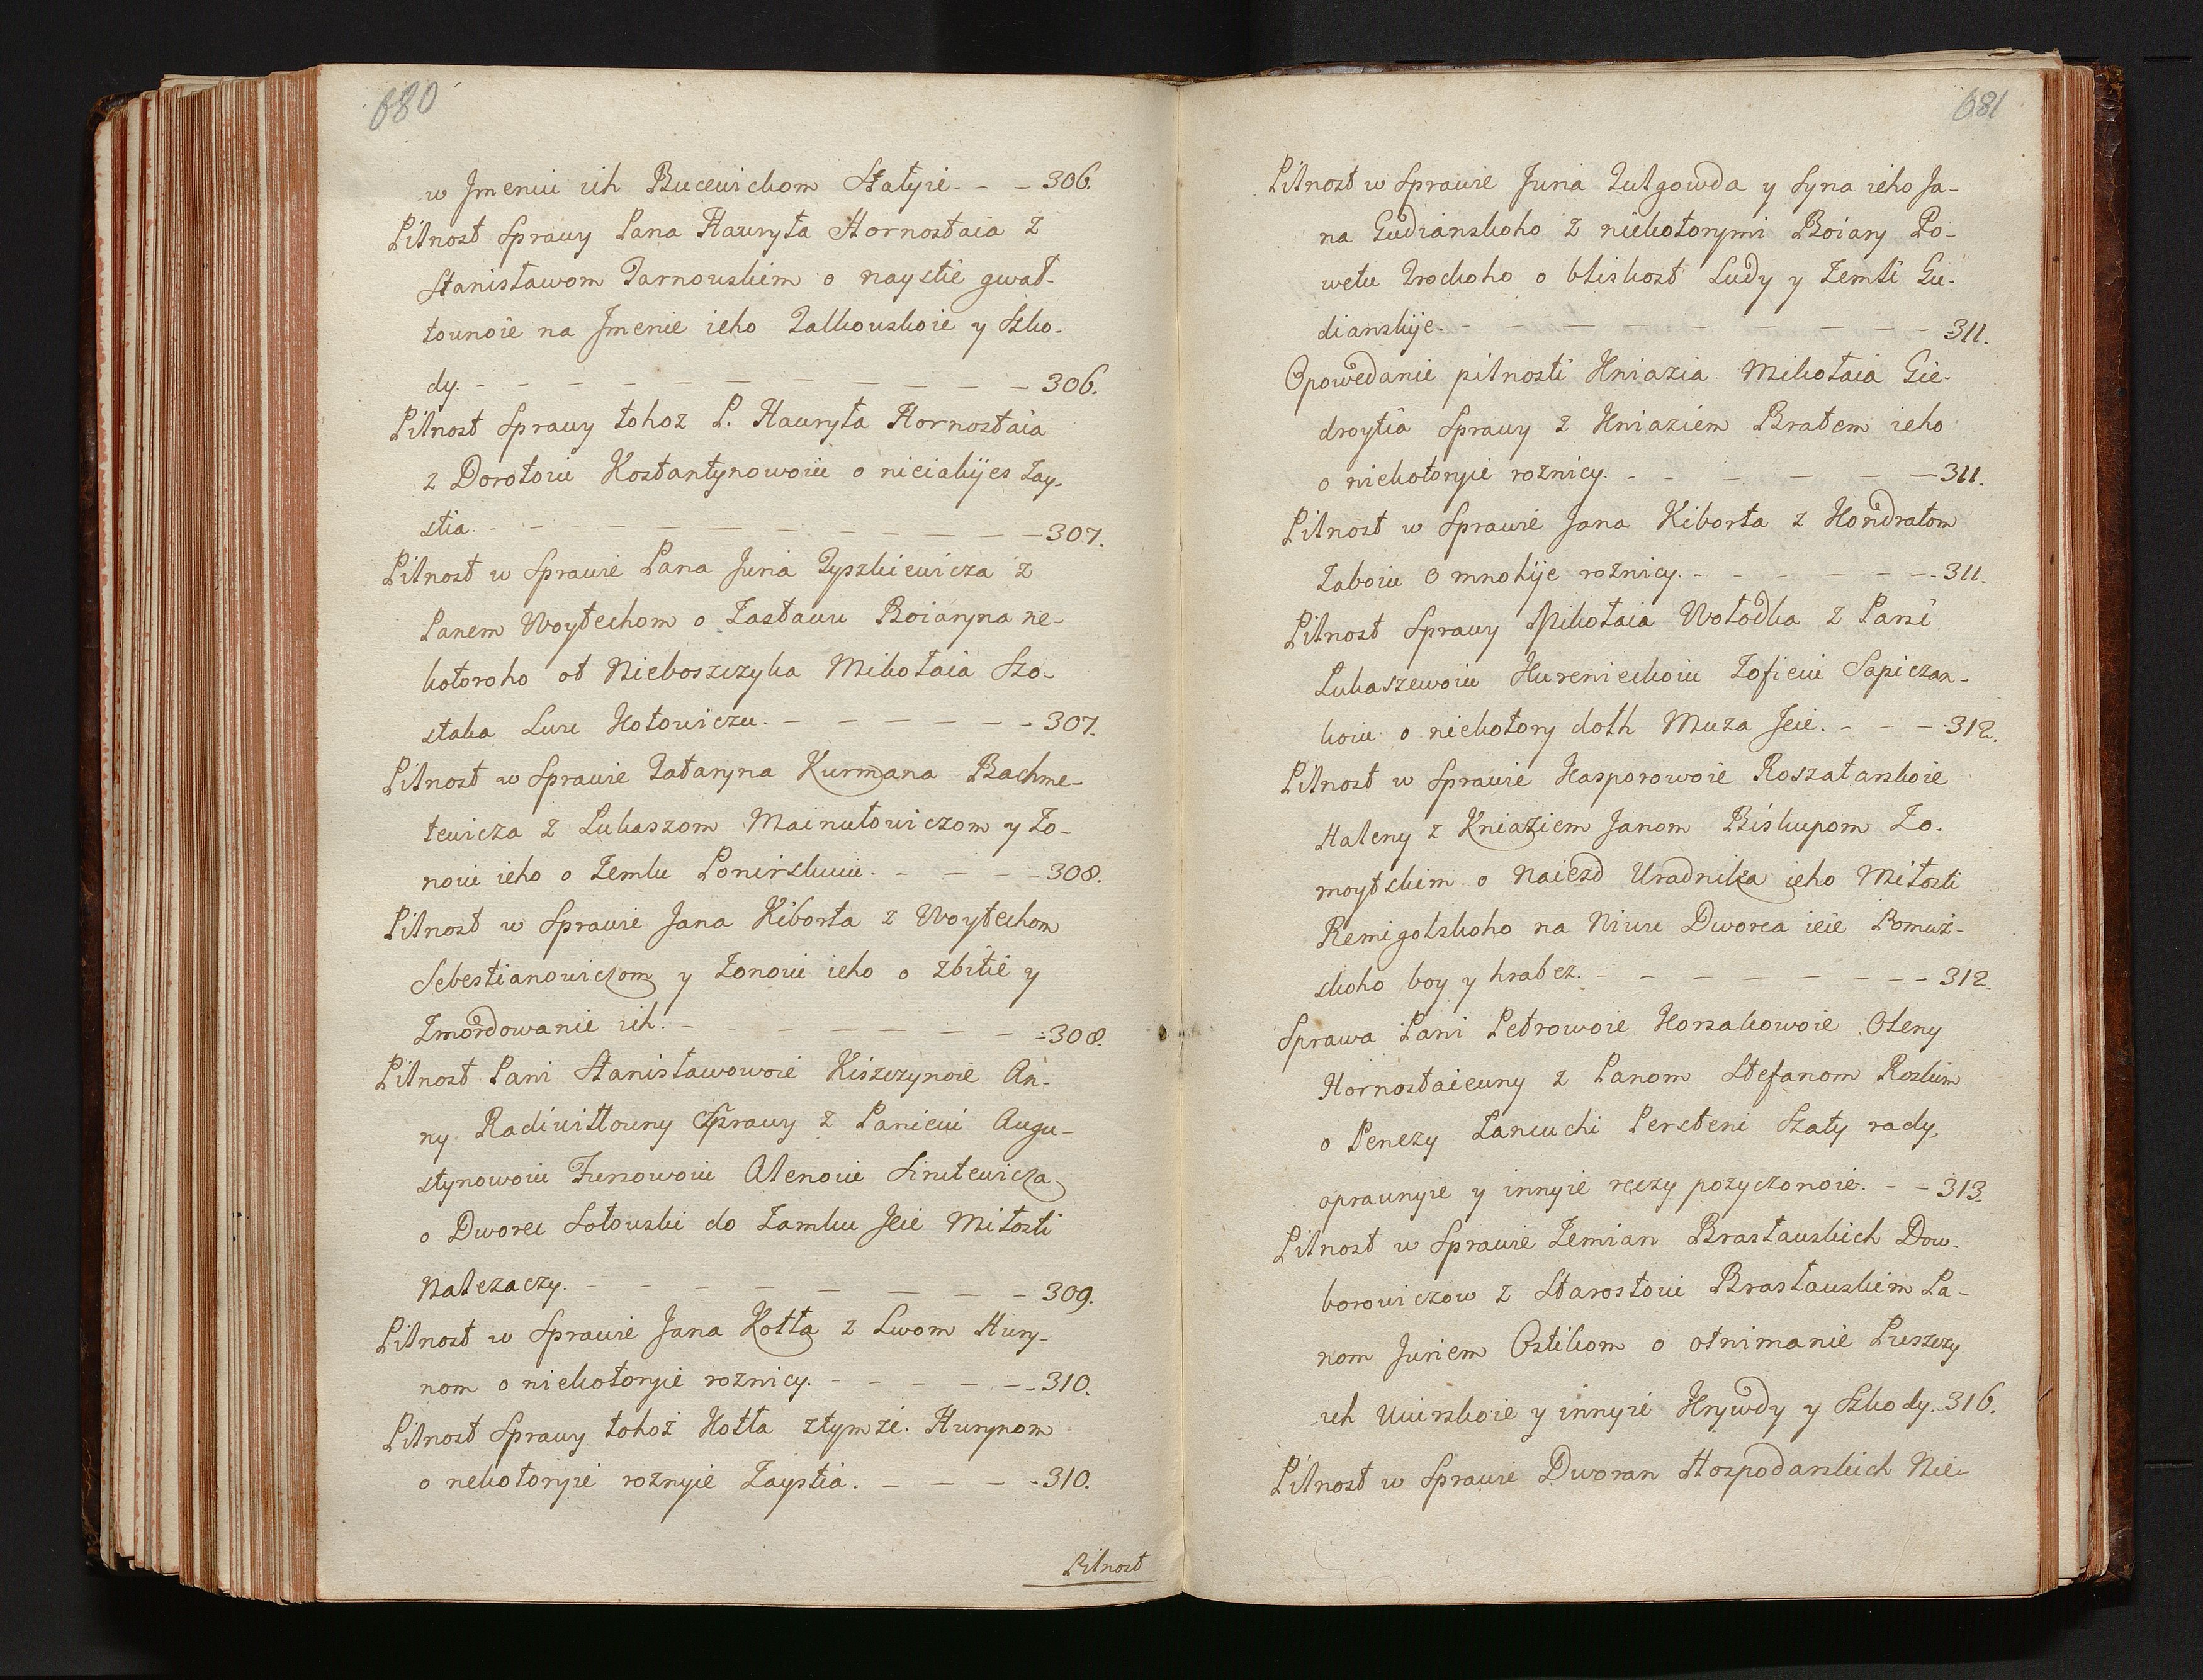 680
w Jmeniu ich Bucewickom Stałyie. - - 306.
Pilnost Sprawy Pana Hauryła Hornostaia z
Stanisławom Tarnouskim o naystie gwał-
tounoie na Jmenie ieho Talkouskoie y Szko-
dy. - - - - - - - - - - - 306.
Pilnost Sprawy tohoz P. Hauryła Hornostaia
z Dorotoiu Kostantynowoiu o nieiakijes Zay-
stia. - - - - - - - - - - - 307.
Pilnost w Sprawie Pana Juria Tyszkiewicza z
Panem Woytechom o Zastawu Boiaryna ne-
kotoroho ot Nieboszczyka Mikołaia Szo-
staka Lwu Hotowiczu. - - - - - - 307.
Pilnost w Sprawie Tataryna Kurmana Bachme-
tewicza z Lukaszom Mainutowiczom y Żo-
noiu ieho o Zemlu Ponirskuiu. - - - - 308.
Pilnost w Sprawie Jana Kiborta z Woytechom
Sebestianowiczom y Zonoiu ieho o zbitie y
Zmordowanie ich. - - - - - - - 308.
Pilnost Pani Stanisławowoie Kiszczynoie An-
ny Radiwiłłouny Sprawy z Panieiu Augu-
stynowoiu Fursowoiu Alenoiu Sirutewicza
o Dworec Sołouski do Zamku Jeie Miłosti
Nalezaczy. - - - - - - - - 309.
Pilnost w Sprawie Jana Kotła z Lwom Hury-
nom o niekotoryie roznicy. - - - - - 310.
Pilnost Sprawy tohoż Kotła ztymże. Hurynom
o nekotoryie roznyie Zaystia. - - - - 310.
Pilnost
681
Pilnost w Sprawie Juria Tulgowda y Syna ieho Ja-
na Gudianskoho z niekotorymi Boiary Po-
wetu Trockoho o bliskost Ludy y Zemli Gu-
dianskije. - - - - - - - - - 311.
Opowedanie pilnosti Kniazia Mikołaia Gie-
droytia Sprawy z Kniaziem Bratem ieho
o niekotoryie roznicy. - - - - - - 311.
Pilnost w Sprawie Jana Kiborta z Kondratom
Zaboiu o mnohije roznicy. - - - - - - 311.
Pilnost Sprawy Mikołaia Wołodka z Pani
Lukaszewoiu Kurenieckoiu Zofieiu Sapiczan-
koiu o niekotory dolh Muza Jeie. - - - 312.
Pilnost w Sprawie Kasporowoie Roszałanskoie
Haleny z Kniaziem Janom Biskupom Zo-
moytskim o Naiezd Uradnika ieho Miłosti
Remigolskoho na Niwu Dworca ieie Pomuż-
skoho boy y hrabez. - - - - - - - 312.
Sprawa Pani Petrowoie Korsakowoie Oleny
Hornostaieuny z Panom Stefanom Rozkim
o Penezy Lancuchi Persteni Szaty rady
oprawnyie y innyie reczy pozyczonoie. - - 313.
Pilnost w Sprawie Zemian Brasławskich Dow-
borowiczow z Starostoiu Brasławskim Pa-
nom Juriem Ostikom o otnimanie Puszczy
ich Uwirskoie y innyie Krywdy y Szkody. 316.
Pilnost w Sprawie Dworan Hospodarskich Nie-